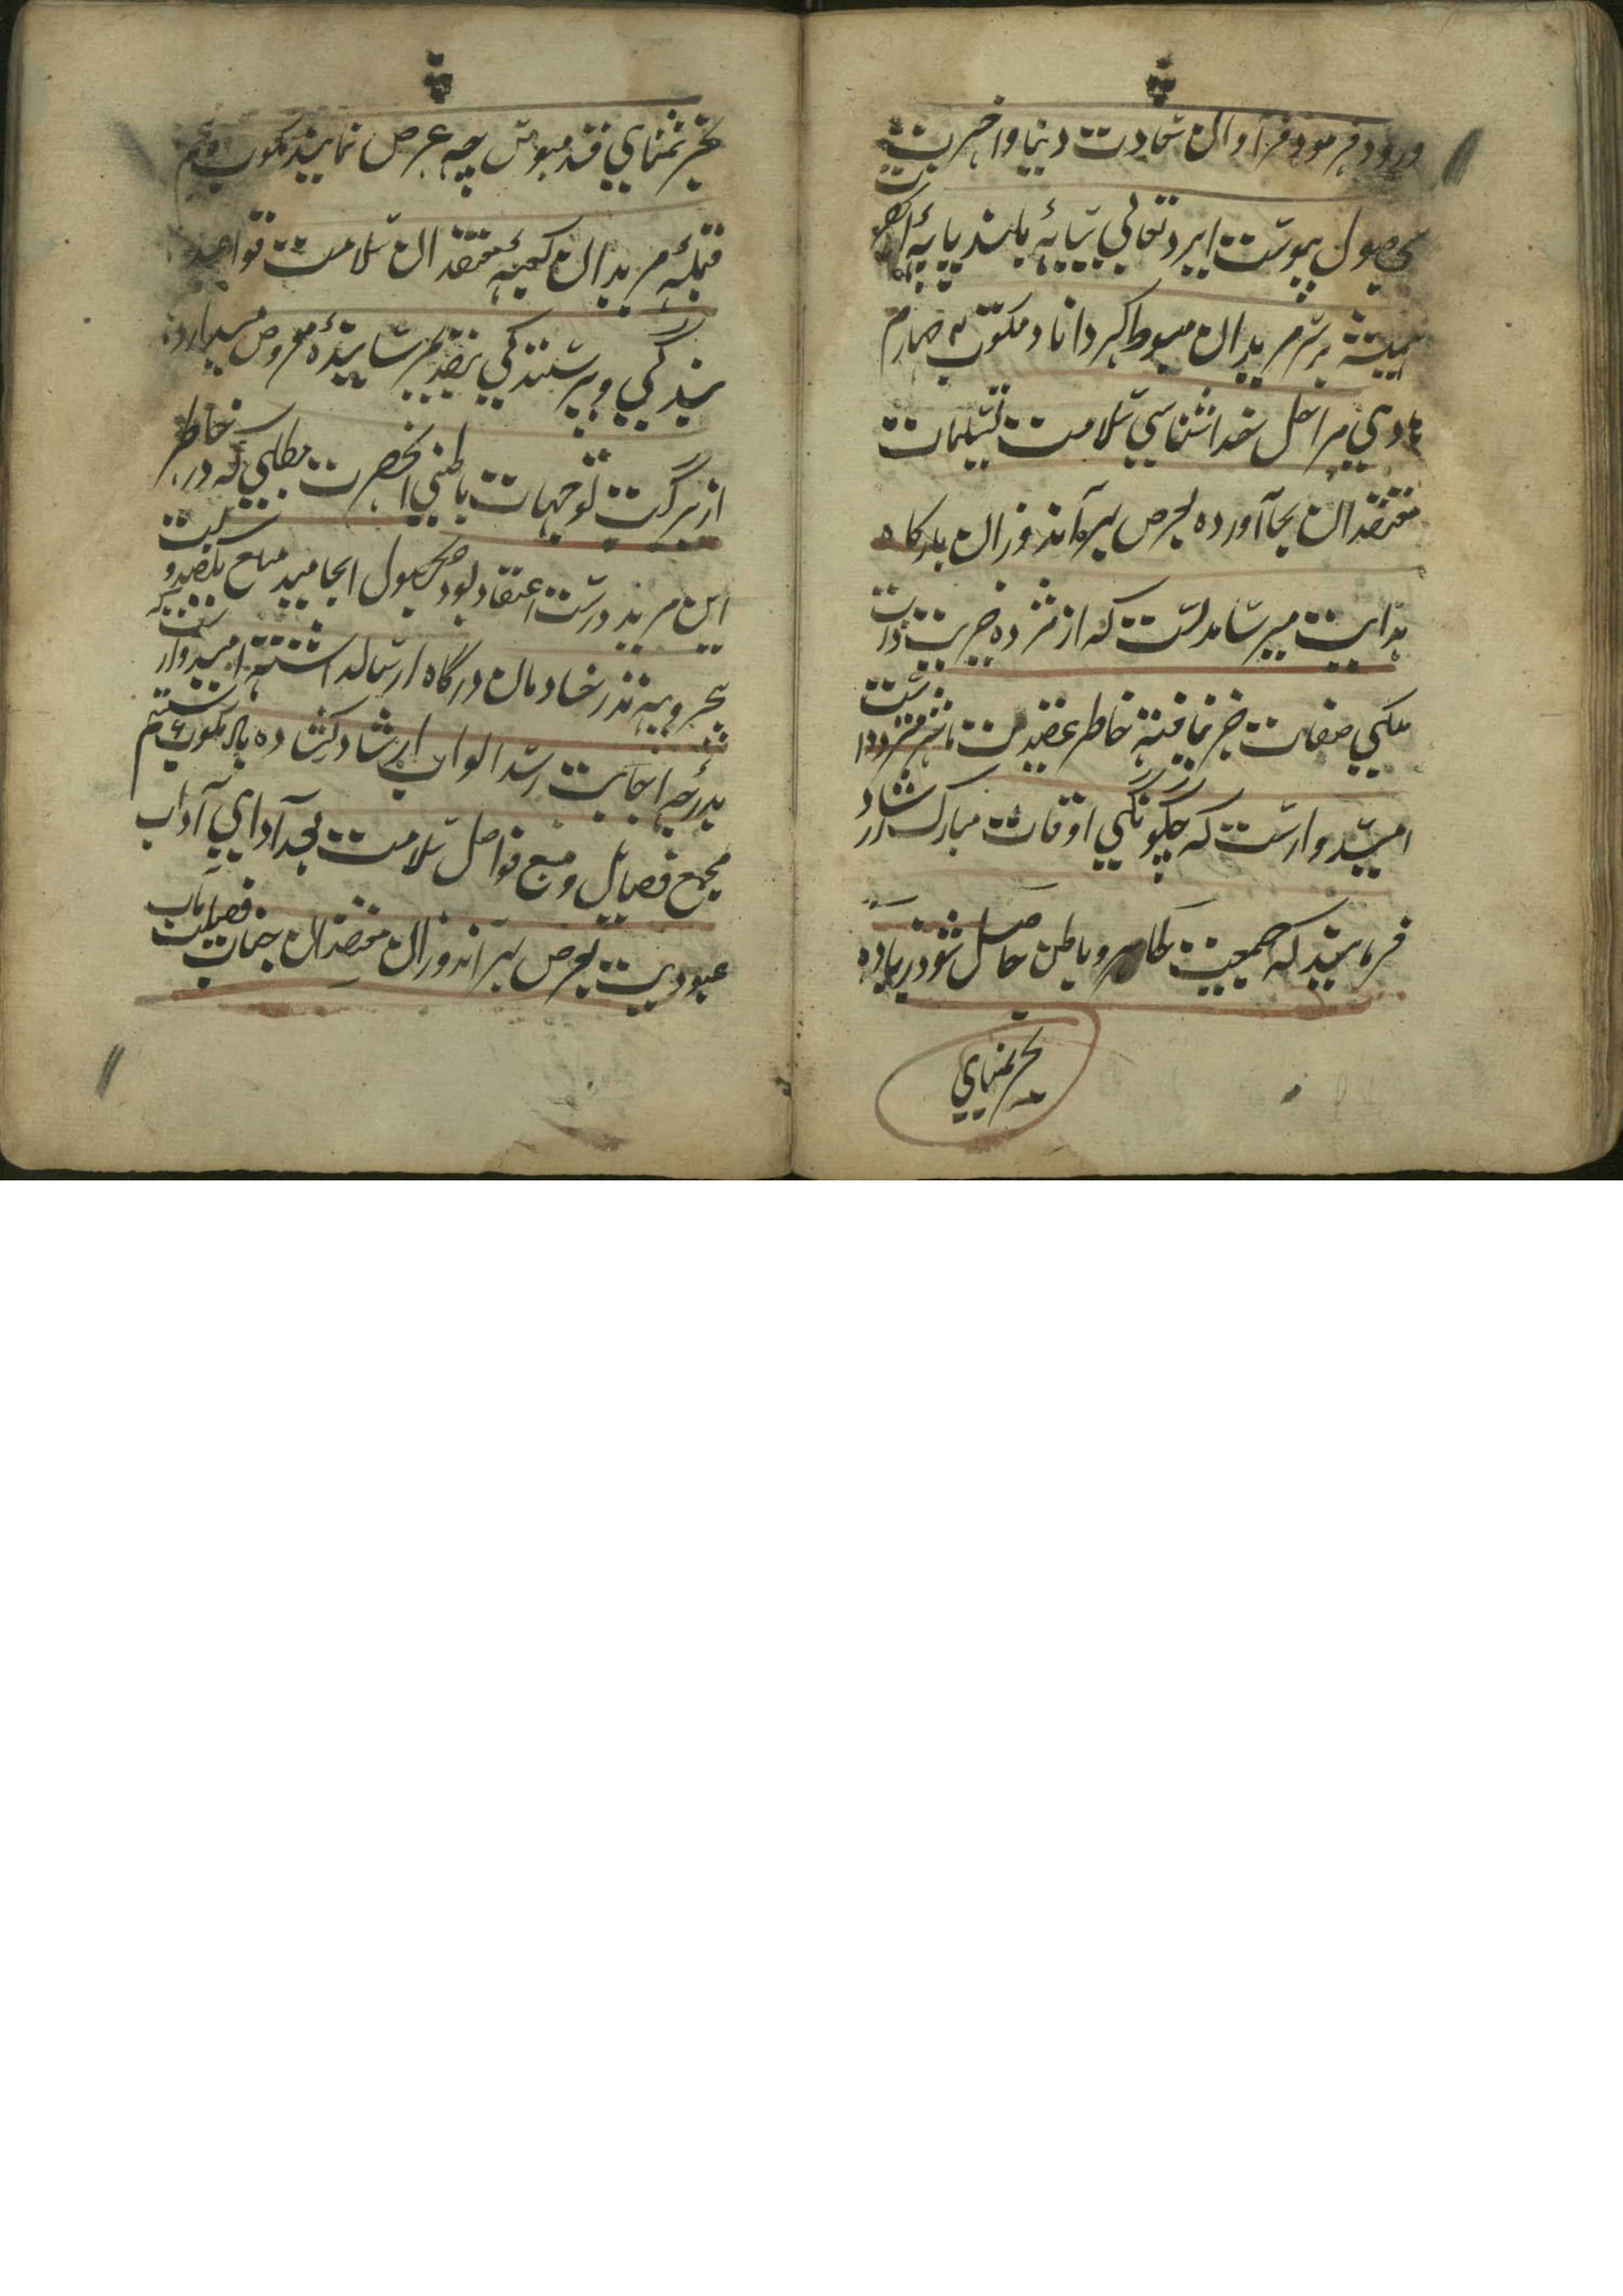 ورود فرمود فراوان سعادت دنیا و اخرت
بحصول پیوست ایزد تعالی سایه بلند پایه
همیشه بر سر مریدان مبسوط گرداناد مکتوب چهارم
هادی مراحل خداشناسی سلامت تسلیمات
معتقدان بجا آورده بعرض سرآمدوران بارکاه
هدایت میرساند که از مژده خیریت ذات
ملکی صفات خبر نیافته خاطر عقیدت
امیدوارست که چگونگی اوقات مبارک ارشاد
فرمایند که جمعیت ظاهر و باطن حاصل شود زیاده
بجز تمنای
بجز تمنای قدمبوس چه عرض نماید مکتوب پنجم
قبلهٔ مریدان کعبهٔ معتقدان سلامت قواعد
بندگی و پرستندگی بتقدیم رسانیده معروض میدارد
از برکت توجهات باطنی آنحضرت مطلبی که در خاطر
این مرید درست اعتقاد بود بحصول انجامید مبلغ یکصد و بیست
روپیه نذر خادمان درگاه ارسال داشته امیدوار
بدرجه اجابت رسد ابواب ارشاد کشاده باد مکتوب ششم
مجمع فضایل و منبع فواضل سلامت بعد آدای آداب
عبودیت بعرض سرآمدوران معتقدان جناب فضیلت مآب